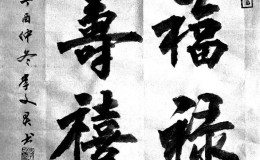 福禄
壽禧
酉仲冬李文
书